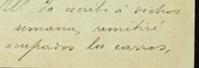 Ya escribí á dichos
semana, remitiré
ocupados los carros,